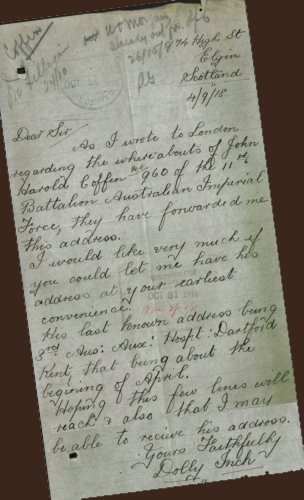 Coffin
not
already
26/10/18
74 High St
Elgin
Scotland
4/9/18
Dear Sir
As I wrote to London
regarding the whereabouts of John
Harold Coffen No 960 of the 11th
Battalion Australian Imperial
Force, they have forwarded me
this address.
I would like very much if
you could let me have his
address at your earliest
convenience.
OCT 31 191
His last known address being
3rd Aus: Auxe: Hospt: Dartford
Kent, that being about the
begining of April.
Hoping this few lines will
reach & also that I may
be able to recive his address.
Yours Faithfully
Dolly Inch